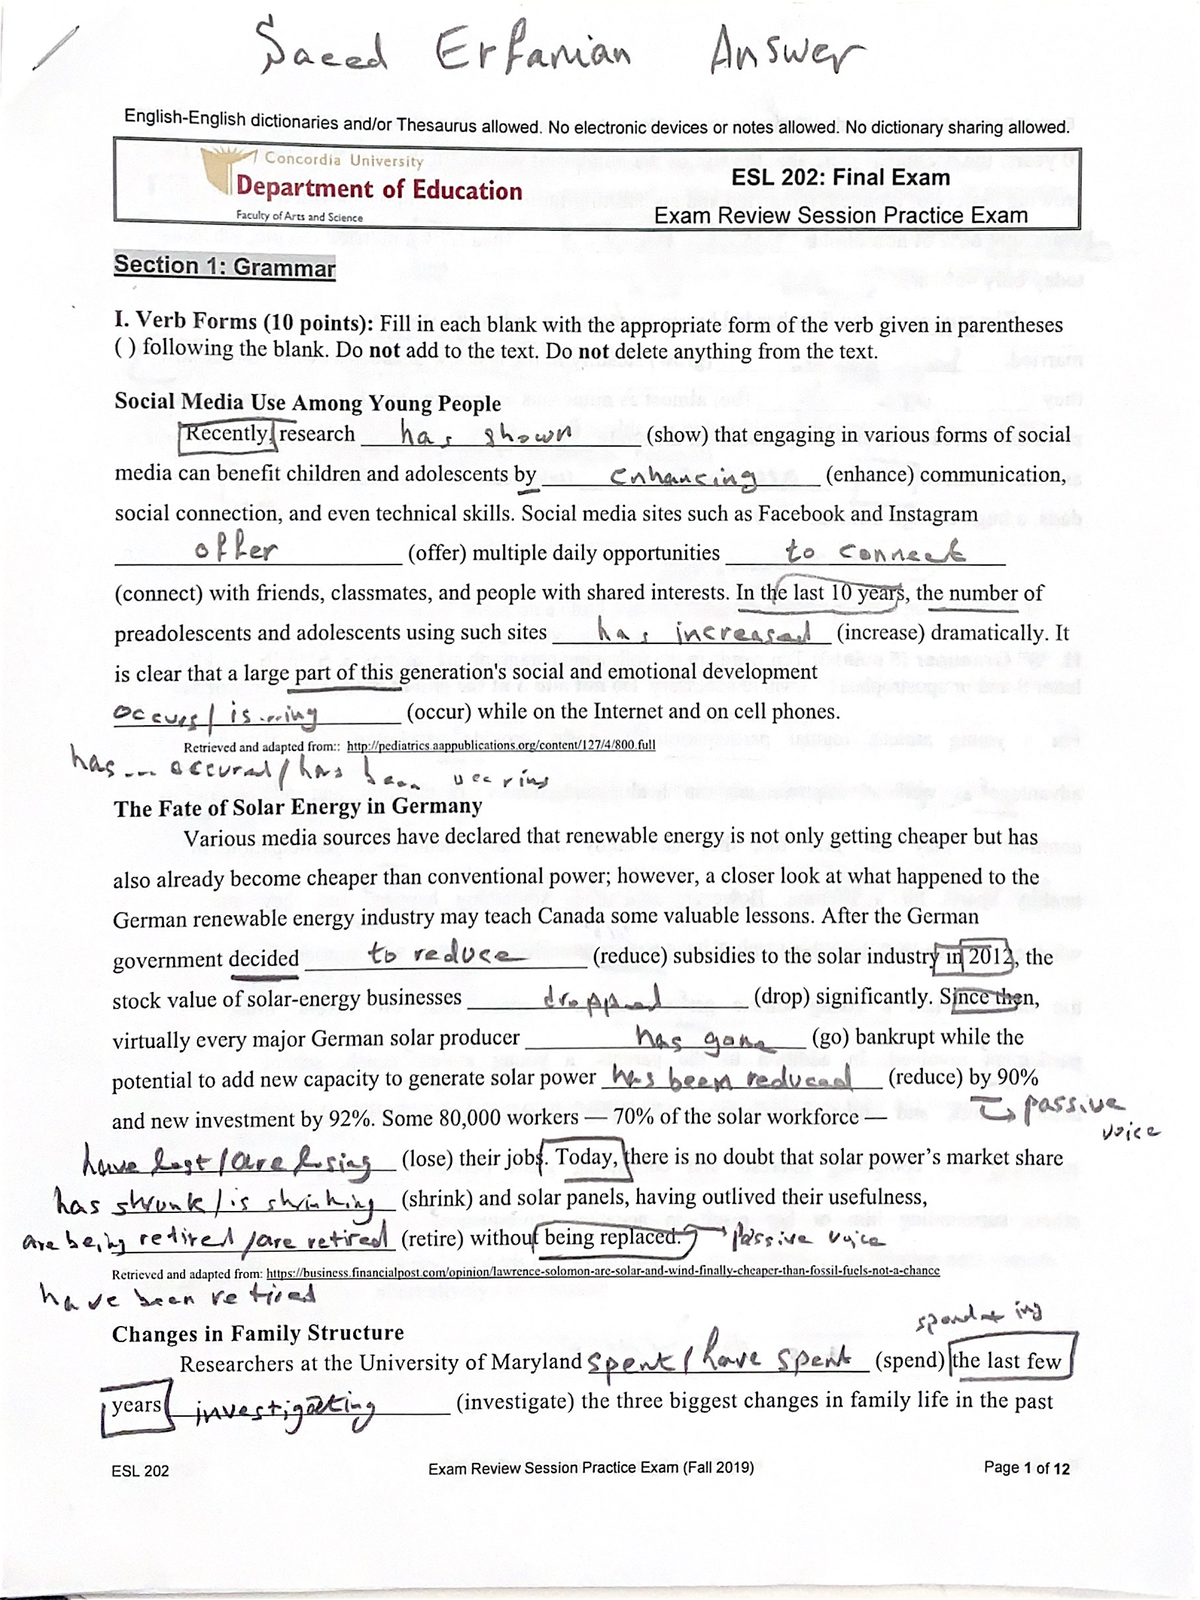 Saeed Erfanian Answer
English-English dictionaries and/or Thesaurus allowed. No electronic devices or notes allowed. No dictionary sharing allowed.
Concordia University
Department of Education
Faculty of Arts and Science
ESL 202: Final Exam
Exam Review Session Practice Exam
Section 1: Grammar
I. Verb Forms (10 points): Fill in each blank with the appropriate form of the verb given in parentheses
( ) following the blank. Do not add to the text. Do not delete anything from the text.
Social Media Use Among Young People
Recently, research has shown (show) that engaging in various forms of social
media can benefit children and adolescents by enhancing (enhance) communication,
social connection, and even technical skills. Social media sites such as Facebook and Instagram
offer (offer) multiple daily opportunities to connect
(connect) with friends, classmates, and people with shared interests. In the last 10 years, the number of
preadolescents and adolescents using such sites has increased (increase) dramatically. It
is clear that a large part of this generation's social and emotional development
occurs / is ..rring (occur) while on the Internet and on cell phones.
Retrieved and adapted from:: http://pediatrics.aappublications.org/content/127/4/800.full
has ... occured / has been
The Fate of Solar Energy in Germany
Various media sources have declared that renewable energy is not only getting cheaper but has
also already become cheaper than conventional power; however, a closer look at what happened to the
German renewable energy industry may teach Canada some valuable lessons. After the German
government decided to reduce (reduce) subsidies to the solar industry in 2012, the
stock value of solar-energy businesses dropped (drop) significantly. Since then,
virtually every major German solar producer has gone (go) bankrupt while the
potential to add new capacity to generate solar power has been reduced (reduce) by 90%
and new investment by 92%. Some 80,000 workers — 70% of the solar workforce — → passive voice
have lost / are losing (lose) their jobs. Today, there is no doubt that solar power's market share
has shrunk / is shrinking (shrink) and solar panels, having outlived their usefulness,
are being retired / are retired (retire) without being replaced. → passive voice
Retrieved and adapted from: https://business.financialpost.com/opinion/lawrence-solomon-are-solar-and-wind-finally-cheaper-than-fossil-fuels-not-a-chance
have been retired
Changes in Family Structure
spend + ing
Researchers at the University of Maryland spent / have spent (spend) the last few
years investigating (investigate) the three biggest changes in family life in the past
ESL 202 Exam Review Session Practice Exam (Fall 2019) Page 1 of 12